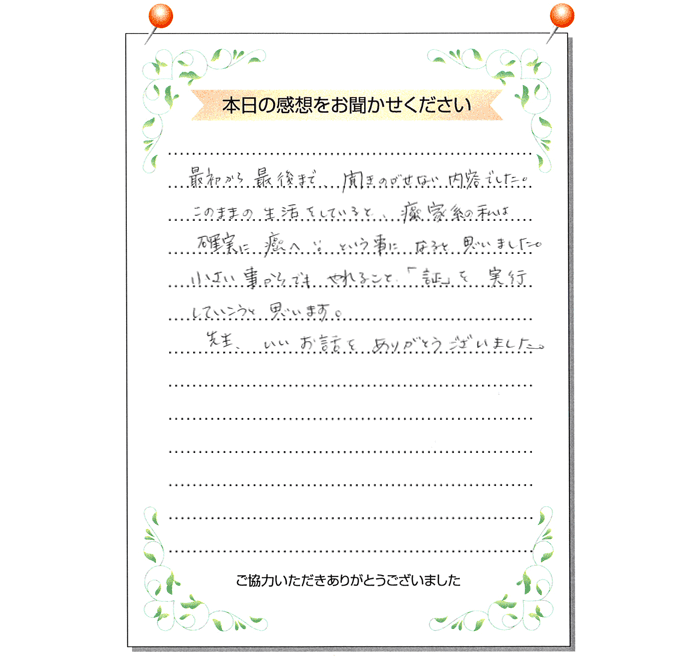 本日の感想をお聞かせください
最初から最後まで、聞きのがせない内容でした。
このままの生活をしていると、癌家系の私は
確実に癌へ…という事になると思いました。
小さい事からでもやれること「証」を実行
していこうと思います。
先生、いいお話をありがとうございました。
ご協力いただきありがとうございました